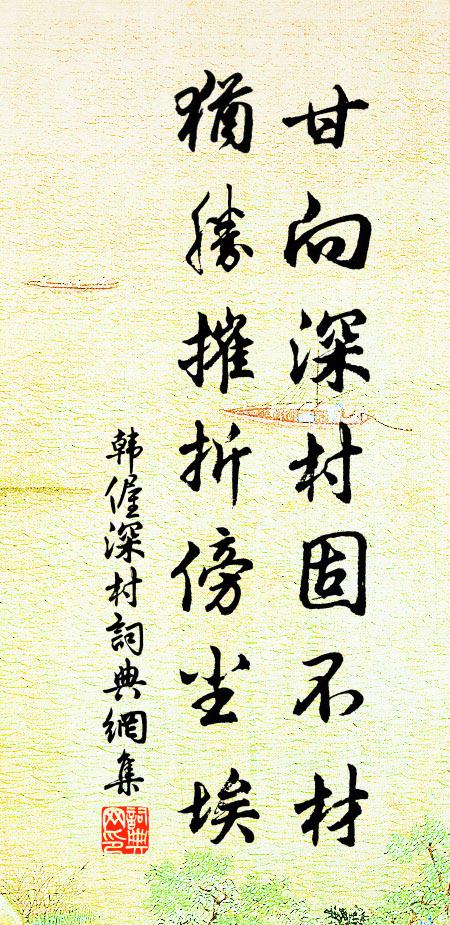 甘向深村固不材
猶勝摧折傍尘埃
韩偓深村詞典網集
詞典
网印